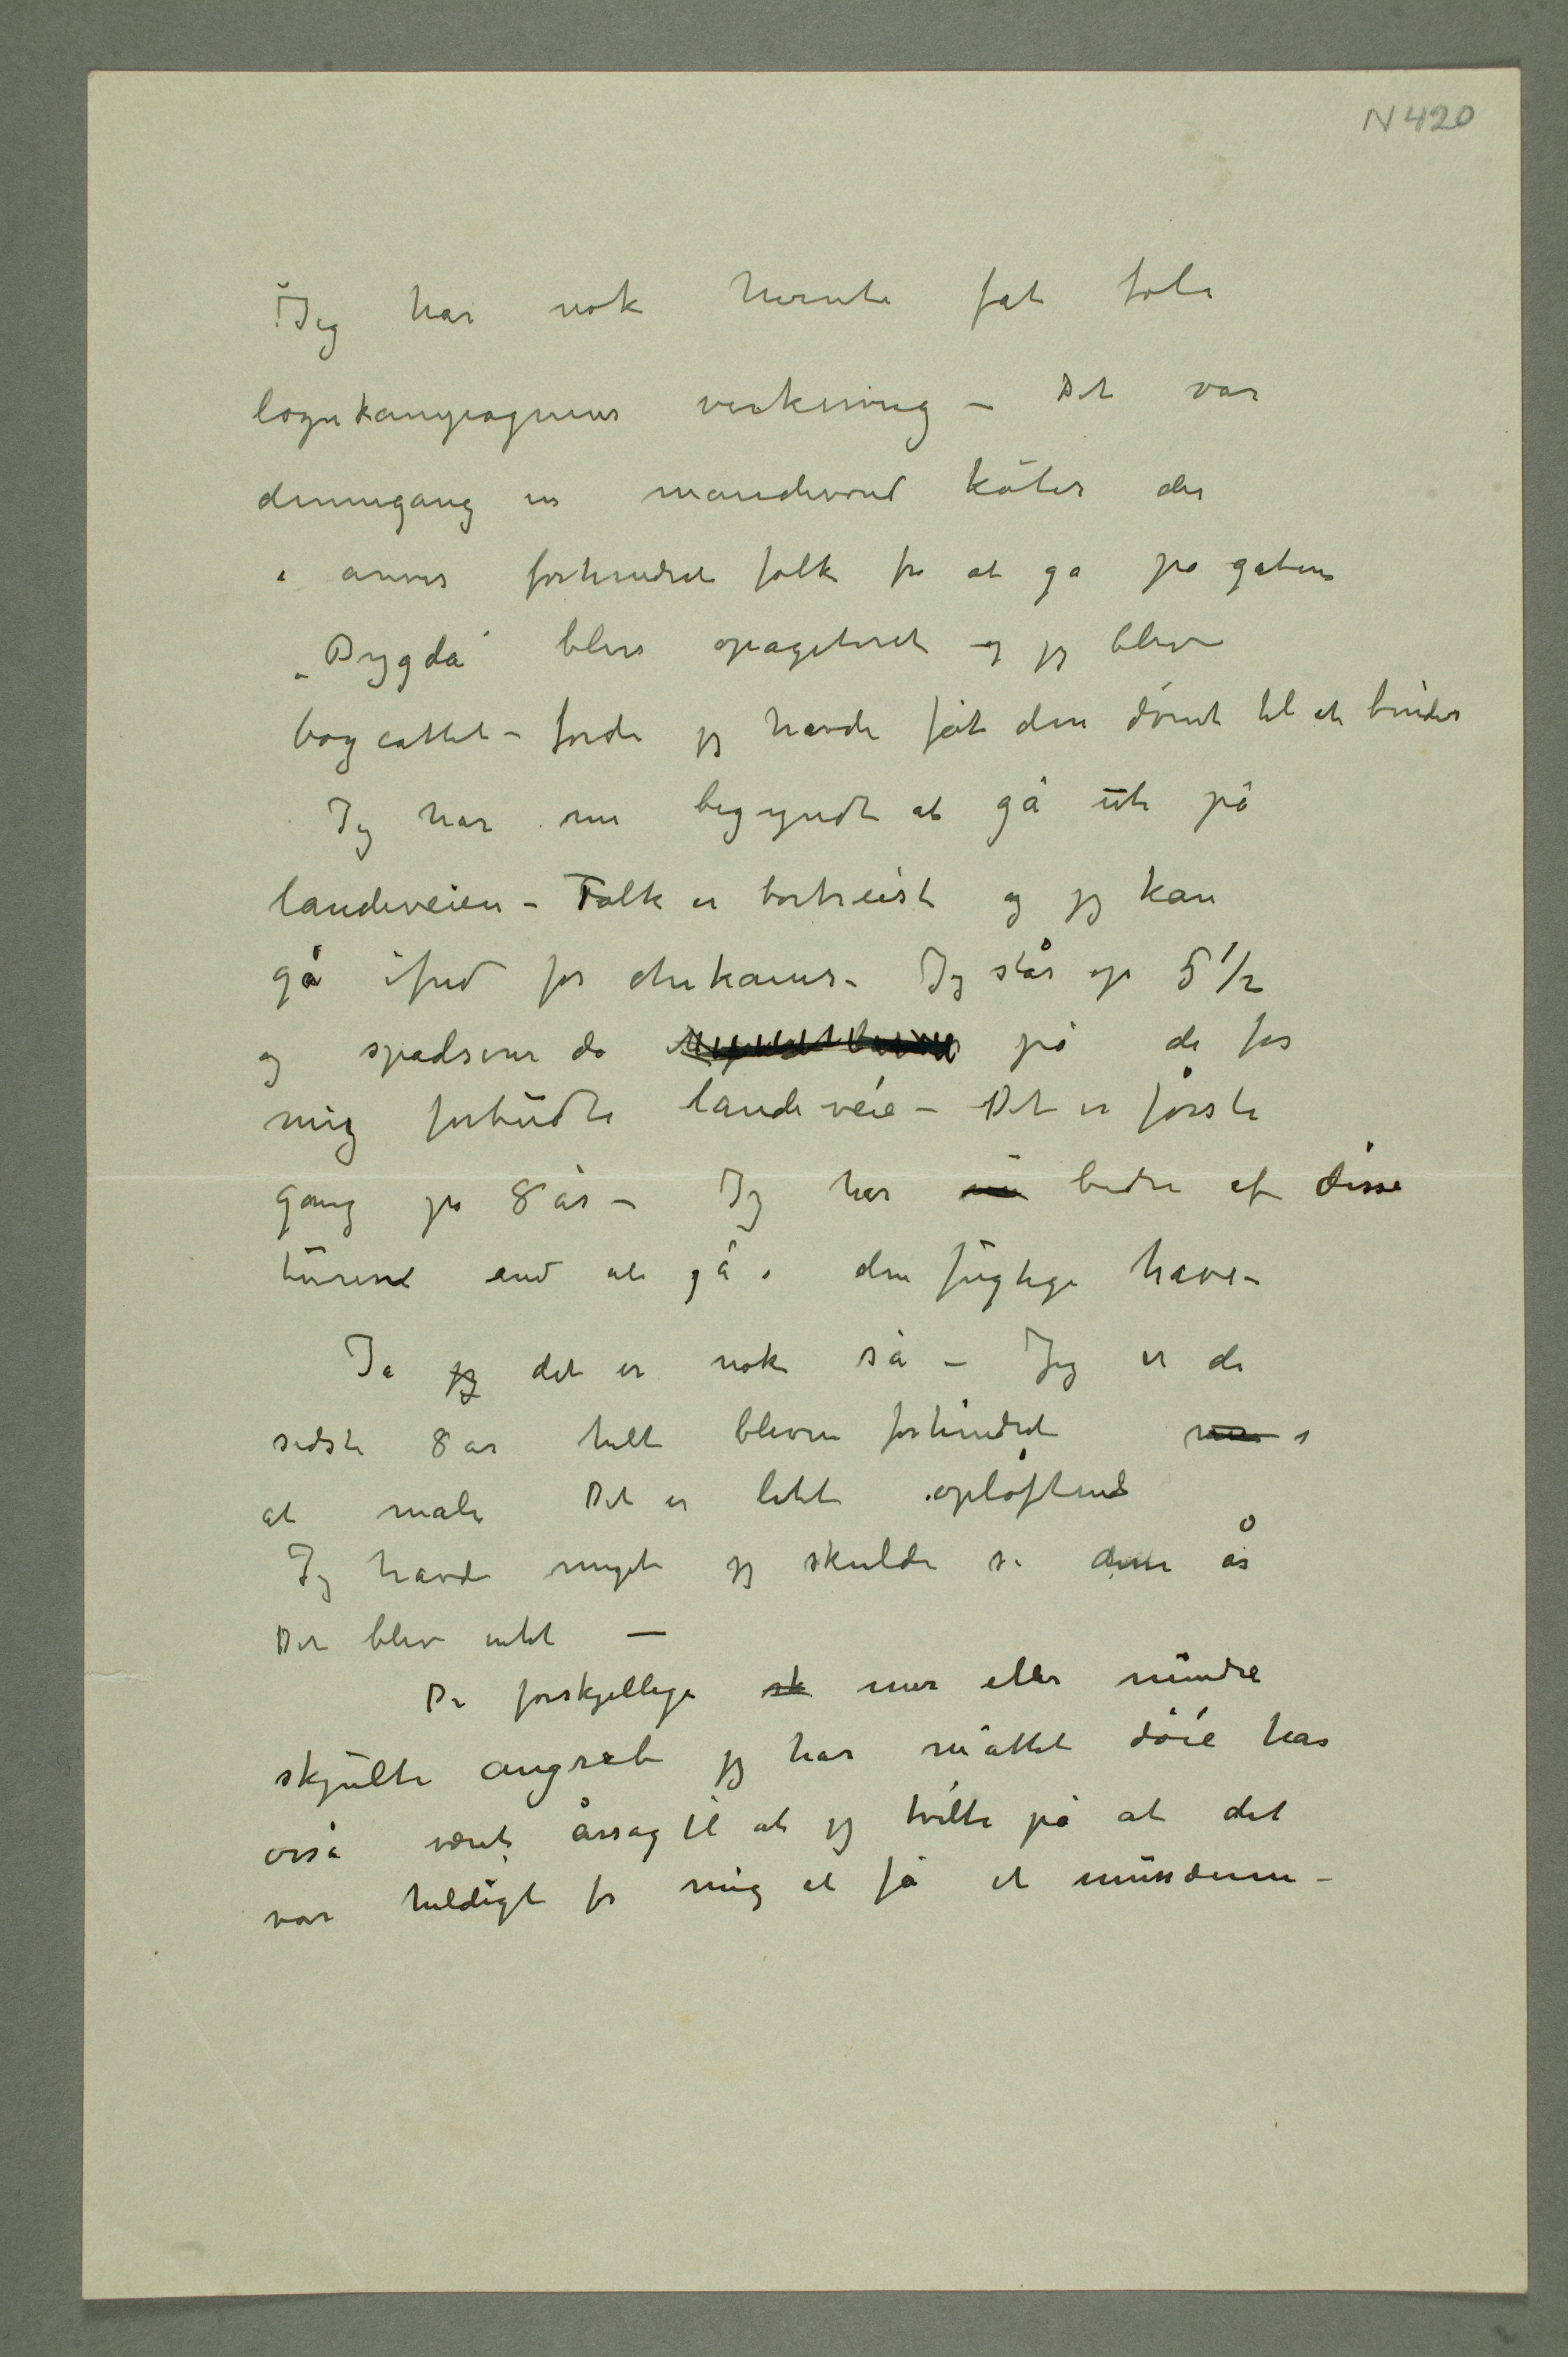 N 420
Jeg har nok herute fåt føle
løgnkampagnens virkning – Det var
dennegang en mandevond køter der
i årevis forhindret folk fra at gå på gaten
„Bygda“ blev opagiteret og jeg blev
boycattet – fordi jeg havde fåt den dømt til at bindes
Jeg har nu begyndt at gå ute på
landeveien – Folk er bortreist og jeg kan
gå ifred for chikaner – Jeg står op 5 1/2
og spadserer da på de for
mig forbudte landeveie – Det er første
gang på 8 år – Jeg har nu bedre af disse
turene end at gå i den fugtige have –
Ja jeg det er nok så – Jeg er de
sidste 8 år helt bleven forhindret i
at male Det er lidet opløftende
Jeg havde meget jeg skulde se denne år
Det blev intet –
De forskjellige sk mer eller mindre
skjulte angreb jeg har måttet døie har
også været årsag til at jeg tvilte på at det
var heldigt for mig at få et museum –